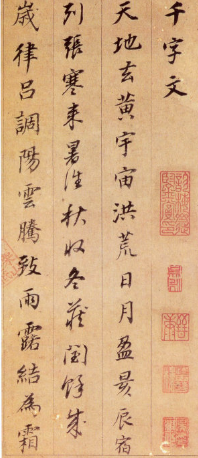 千字文
天地玄黃宇宙洪荒日月盈昃辰宿
列張寒來暑往秋收冬藏閏餘成
歲律呂調陽雲騰致雨露結為霜